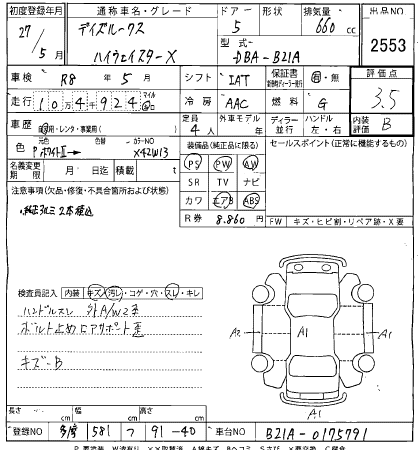 初度登録年月 通称車名・グレード ドアー 形状 排気量 出品NO
27/5月 デイズルークス ハイウェイスターX 5 660 cc 2553
型式 DBA-B21A
車検 R8年5月 シフト IAT 保証書 有・無 評価点 3.5
走行 10万4924 マイル km 冷房 AAC 燃料 G
車歴 自家用・レンタ・事業用( ) 定員 4人 外車モデル ディーラー 並行 ハンドル 左・右 内装評価 B
色 元色 PホワイトII→ 色替 カラーNO X42W13 装備品(純正品に限る) セールスポイント(正常に機能するもの)
名義変更期限 月 日迄 積載 t PS PW AW
SR TV ナビ
注意事項(欠品・修復・不具合箇所および状態) カワ エアB ABS
純正アルミ2本積込 R券 8,860円 FW キズ・ヒビ割・リペア跡・X要
検査員記入 内装 キズ・汚レ・コゲ・穴・スレ・キレ
ハンドルスレ 外A/W2キズ
ボルト止めリアサポート歪
キズ-B
A2 A1 A2
A1
長さ cm 幅 cm 高さ cm
登録NO 多摩 581 つ 91-40 車台NO B21A-0175791